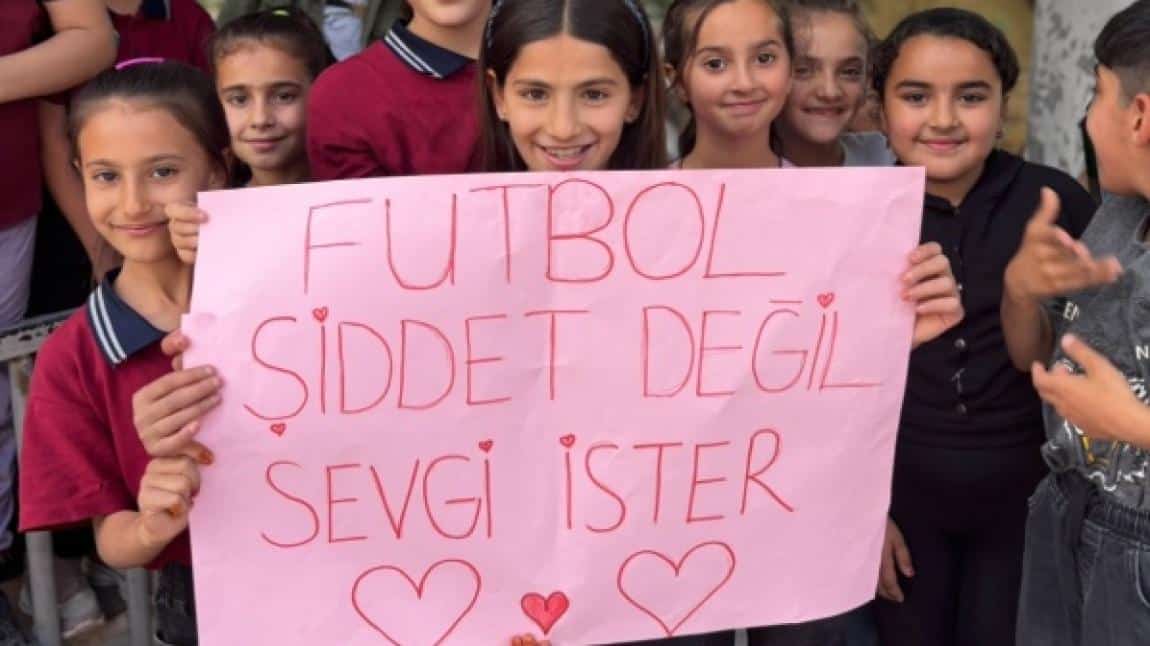 FUTBOL
ŞİDDET DEĞİL
SEVGİ İSTER